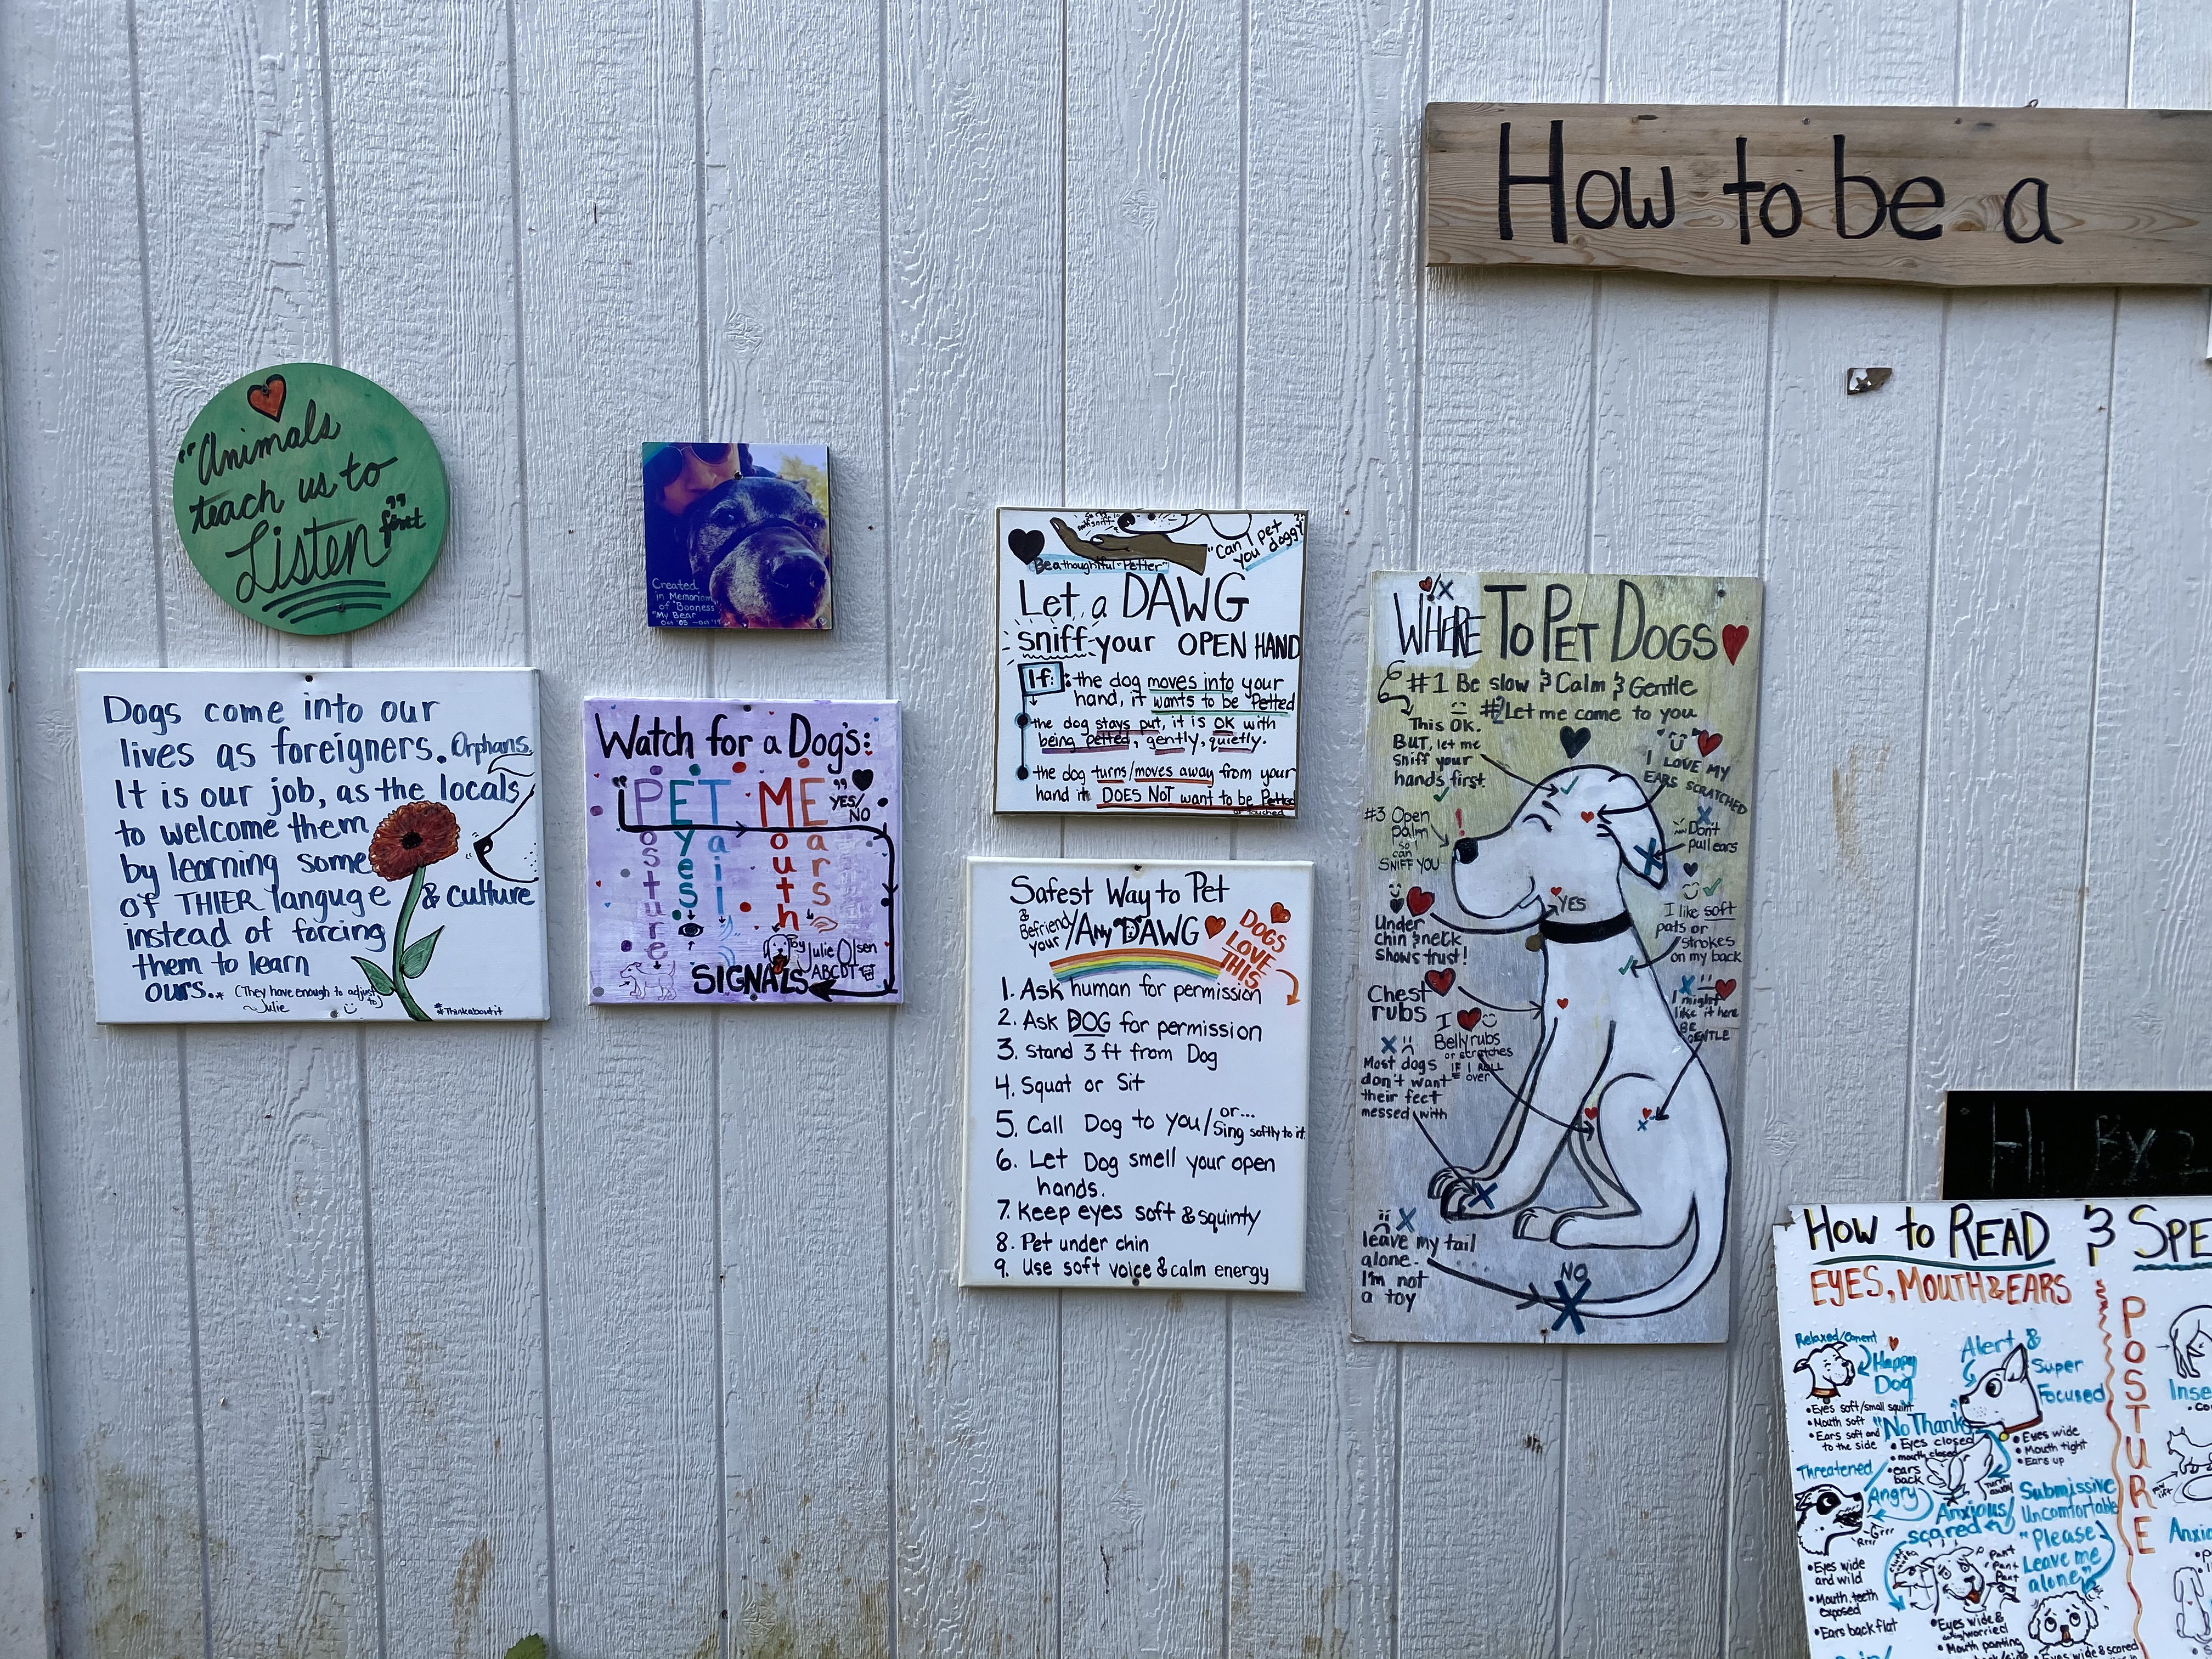 How to be a
"Animals
teach us to
Listen"
first
Dogs come into our
lives as foreigners. Orphans.
It is our job, as the locals,
to welcome them
by learning some
of THIER languge & culture
instead of forcing
them to learn
ours.. (They have enough to adjust to)
~Julie
#Thinkaboutit
Created
in Memoriam
of "Booness"
"My Bear
Watch for a Dog's:
"PET ME"
YES/
NO
Posture
Eyes
Tail
Mouth
Ears
SIGNALS
Julie Olsen
ABCDT
"Can I pet
you doggy?"
"Be a thoughtful "Petter"
Let a DAWG
sniff your OPEN HAND
If: the dog moves into your
hand, it wants to be Petted
the dog stays put, it is OK with
being petted, gently, quietly.
the dog turns/moves away from your
hand it DOES NOT want to be Petted
or touched
Safest Way to Pet
& Befriend your /Any DAWG
DOGS
LOVE
THIS
1. Ask human for permission
2. Ask DOG for permission
3. Stand 3 ft from Dog
4. Squat or Sit
5. Call Dog to you/or... Sing softly to it
6. Let Dog smell your open
hands.
7. Keep eyes soft & squinty
8. Pet under chin
9. Use soft voice & calm energy
WHERE TO PET DOGS
#1 Be slow & Calm & Gentle
#2 Let me come to you
This OK.
BUT, let me
sniff your
hands first.
I LOVE MY
EARS SCRATCHED
#3 Open
palm
so I
can
SNIFF YOU
Don't
pull ears
YES
Under
chin & neck
shows trust!
I like soft
pats or
strokes
on my back
Chest
rubs
I might
like it here
BE
GENTLE
I
Belly rubs
or scratches
IF I ROLL
over
Most dogs
don't want
their feet
messed with
leave my tail
alone.
I'm not
a toy
NO
Hi,
HOW to READ & SPE
EYES, MOUTH & EARS
POSTURE
Relaxed/Conent
Happy
Dog
• Eyes soft/small squint
• Mouth soft
• Ears soft and
to the side
Alert &
Super
Focused
• Eyes wide
• Mouth tight
• Ears up
"No Thanks
• Eyes closed
• mouth closed
• ears
back
Turn
away
Threatened
Angry
Grrr
Rrrr
• Eyes wide
and wild
• Mouth, teeth
exposed
• Ears back flat
Anxious/
scared
Pant
Pant
Pant
• Eyes wide &
worried
• Mouth panting
Submissive
Uncomfortable
"Please
Leave me
alone"
• Eyes wide & scared
Inse
Anxio